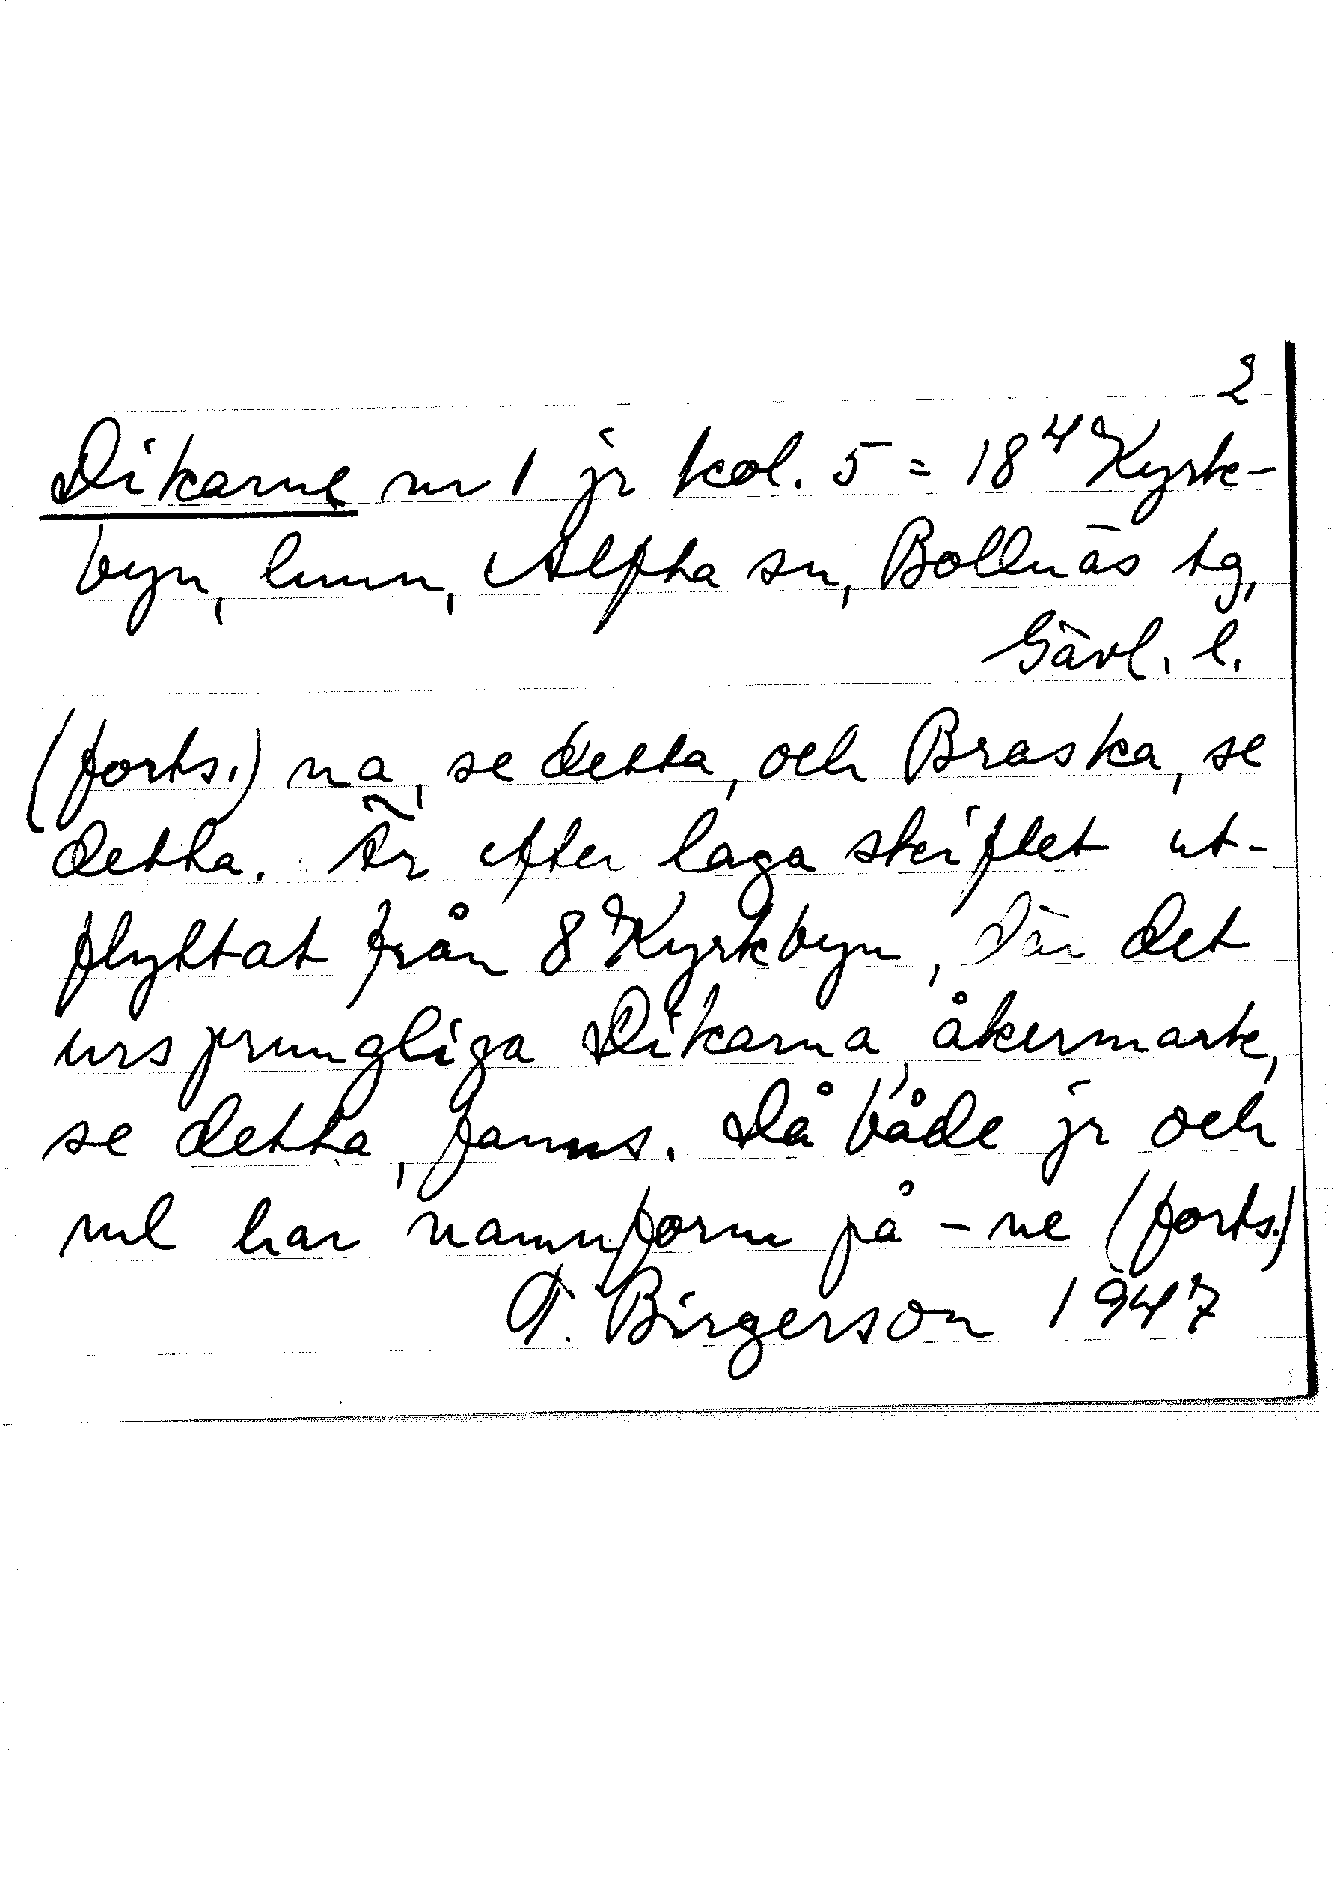 2
Dikarne nr 1 jr kol. 5 = 18⁴ Kyrk-
byn, hmn, Alfta sn, Bollnäs tg,
Gävl. l.
(forts.) na, se detta, och Braska, se
detta. Är efter laga skiftet ut-
flyttat från 8 Kyrkbyn, där det
ursprungliga Dikarna, åkermark,
se detta, fanns. Då både jr och
ml har namnform på -ne (forts.)
T. Birgerson 1947